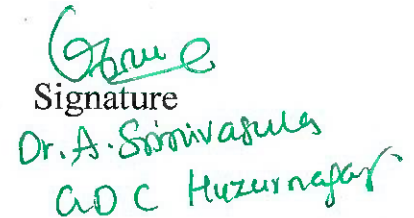 Signature
Dr. A. Srinivasulu
GDC Huzurnagar